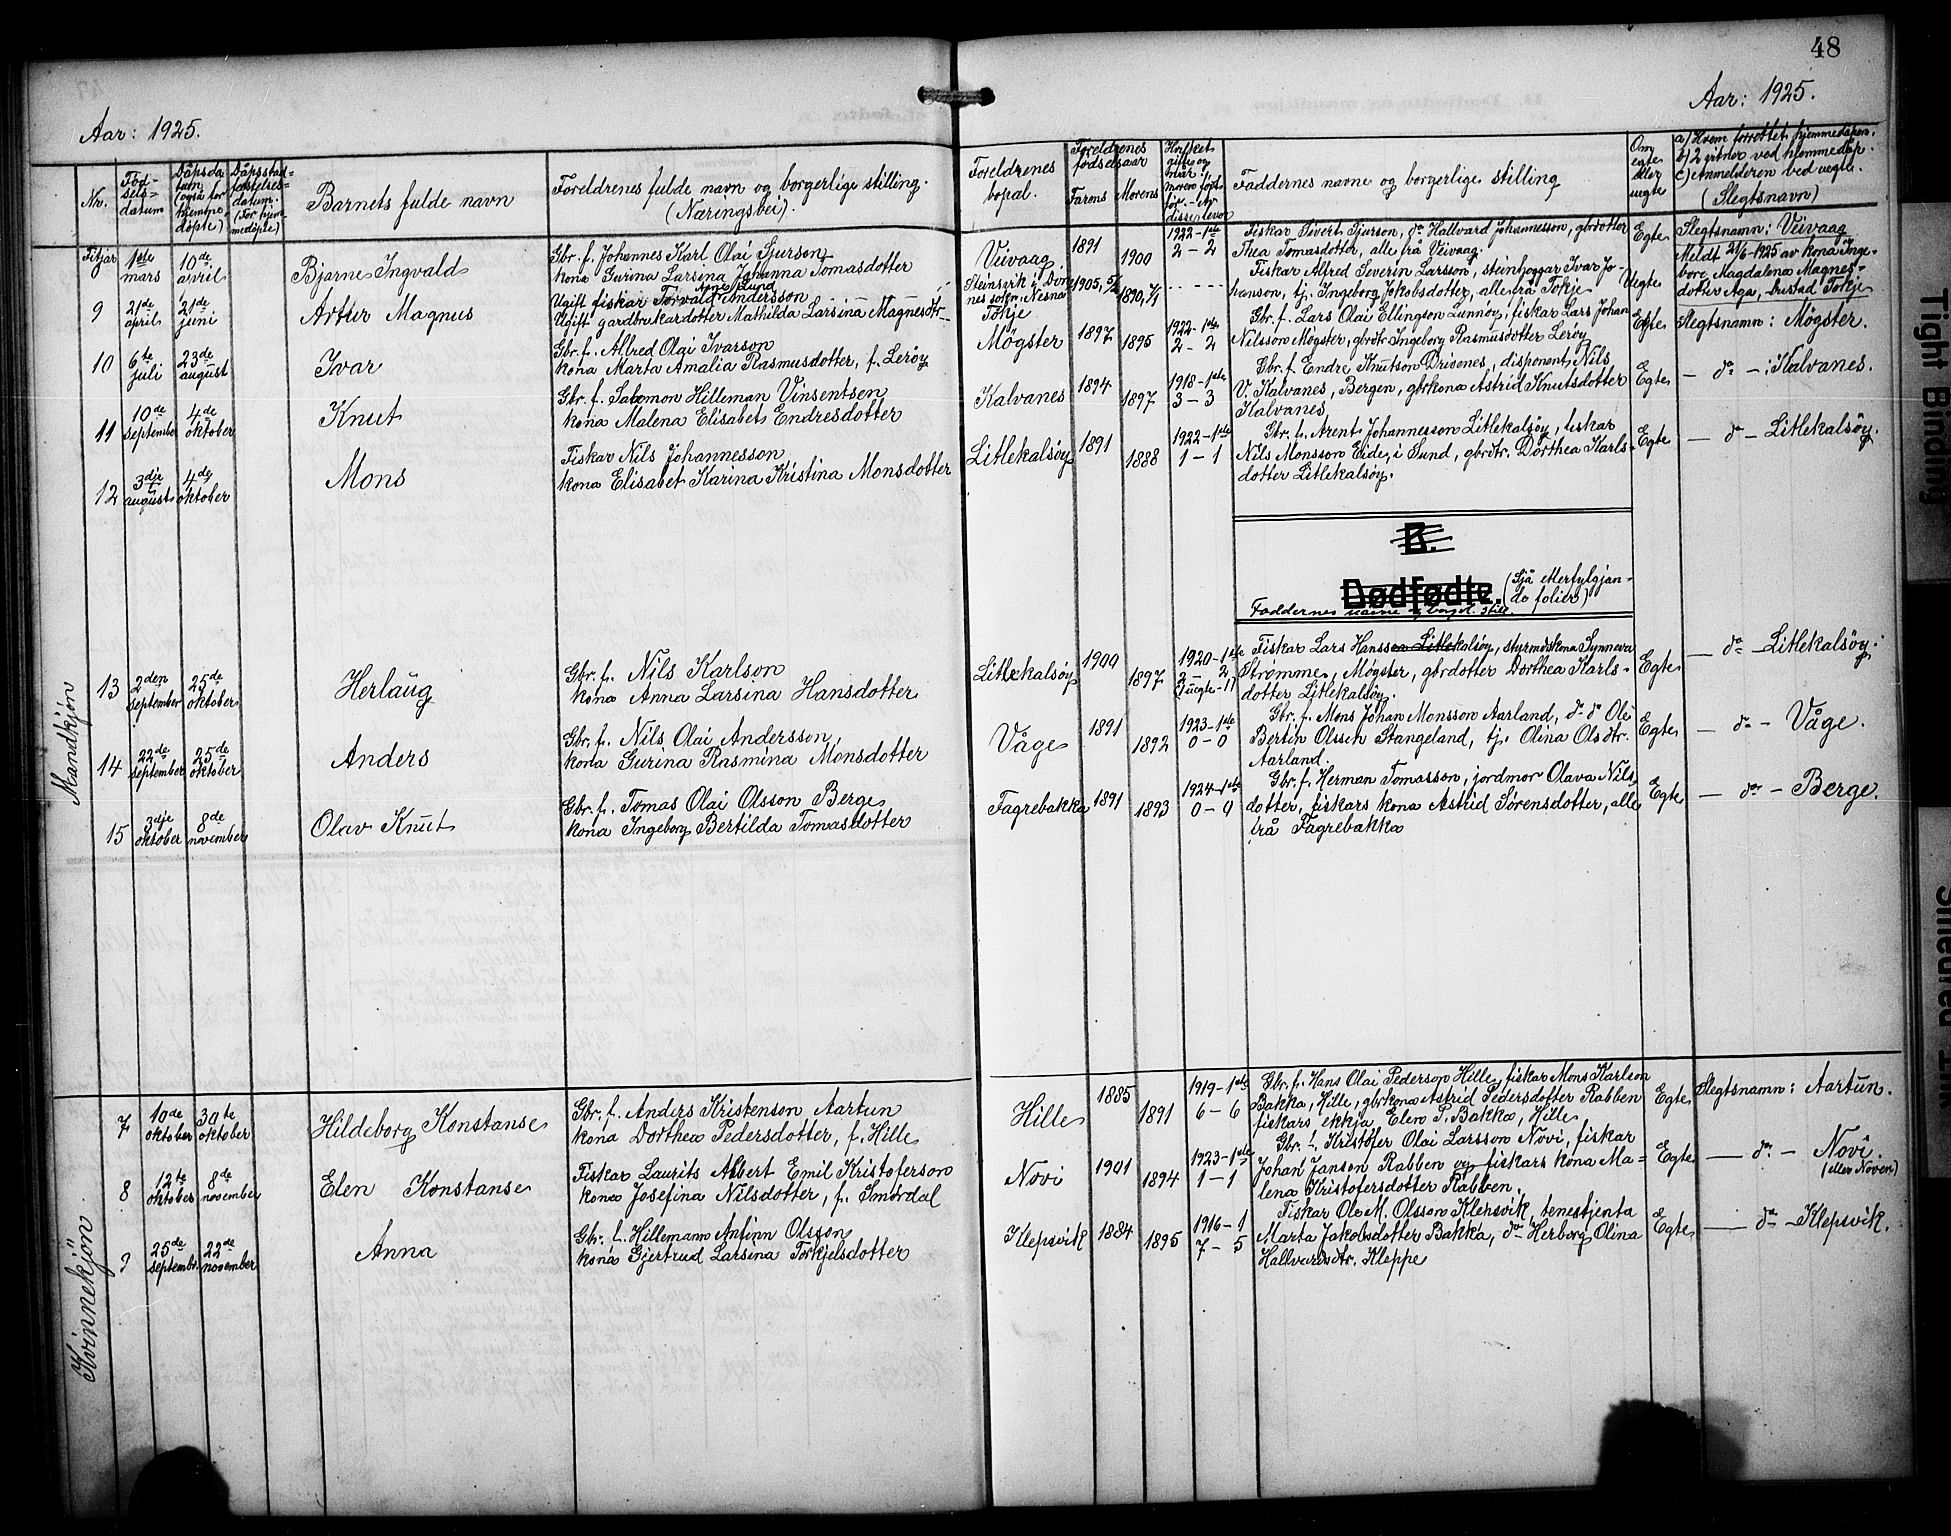 48
Aar: 1925.
Aar: 1925.
Nr.
Föd-
sels-
datum
Dåpsda
tum
(også for
hjemme-
döpte)
Dåpsstad-
festelses-
datum.
(For hjem
medöpte)
Barnets fulde navn
Foreldrenes fulde navn og borgerlige stilling.
(Næringsvei).
Foreldrenes
bopal.
Foreldrenes
fødselsaar
Farens Morens
Faddernes navne og borgerlige stilling
Om
egte
eller
uegte
a) Hvem forrettet hjemmedåpen.
b) 2 vitner ved hjemmedåp.
c) Anmelderen ved uegte.
(Slegtsnavn)
Fitjar
1ste
mars
10de
april
Bjarne Ingvald
Gbr. f. Johannes Karl Olai Sjurson
kona Gurina Larsina Johanna Tomasdotter
Veivaag
1891
1900
1922-1ste
2-2
Fiskar Sivert Sjurson, do Hallvard Johannesson, gbrdotter
Thea Tomasdotter, alle frå Veivaag.
Egte
Slegtsnamn: Veivaag
9
21de
april
21de
juni
Artur Magnus
Arne Lund
Ugift fiskar Torvald Andersson
Ugift gardbrukardotter Mathilda Larsina Magnesdtr.
Steinsvik i Døn
nes sokn, Nesna
Tökje
1905, 5/2
1890, 7/1
Fiskar Alfred Severin Larsson, steinhoggar Ivar Jo-
hanson, tj. Ingeborg Jakobsdotter, alle frå Tökje
Uegte
Meldt 21/6-1925 av kona Inge-
borg Magdalena Magnes-
dotter Aga, bustad Tökje
10
6te
juli
23de
august
Ivar
Gbr. f. Alfred Olai Ivarson
kona Marta Amalia Rasmusdotter, f. Lerøy
Møgster
1897
1895
1922-1ste
2-2
Gbr. f. Lars Olai Ellingson Lunnøy, fiskar Lars Johan
Nilsson Møgster, gbrdtr. Ingeborg Rasmusdotter Lerøy
Egte
Slegtsnamn: Møgster.
11
10de
september
4de
oktober
Knut
Gbr. f. Salomon Hilleman Vinsentsen
kona Malena Elisabet Endresdotter
Kalvanes
1894
1897
1918-1ste
3-3
Gbr. f. Endre Knutson Drivenes, disponent Nils
V. Kalvanes, Bergen, gbrkona Astrid Knutsdotter
Kalvanes
Egte
— do — Kalvanes.
12
3dje
august
4de
oktober
Mons
Fiskar Nils Johannesson
kona Elisabet Karina Kristina Monsdotter
Litlekalsöy
1891
1888
1922-1ste
1-1
Gbr. f. Arent Johannesson Litlekalsöy, fiskar
Nils Monsson Eide, i Sund, gbrdtr. Dorthea Karls-
dotter Litlekalsöy.
Egte
— do — Litlekalsöy.
B.
Dødfødte. (Sjå etterfylgjan-
de folier)
Faddernes navne og borgerl. still.
Mandkjön
13
2den
september
25de
oktober
Herlaug
Gbr. f. Nils Karlson
kona Anna Larsina Hansdotter
Litlekalsöy
1900
1897
1920-1ste
2-2
(1 uegte-1)
Fiskar Lars Hansson Litlekalsöy, styrmdskona Synneva
Strömme, Møgster, gbrdotter Dorthea Karls-
dotter Litlekalsöy.
Egte
— do — Litlekalsöy.
14
22de
september
25de
oktober
Anders
Gbr. f. Nils Olai Andersson,
kona Gurina Rasmina Monsdotter
Våge
1891
1892
1923-1ste
0-0
Gbr. f. Mons Johan Monsson Aarland, do do Ole
Bertin Olssen Stangeland, tj. Olina Olsdtr.
Aarland.
Egte
— do — Våge.
15
3dje
oktober
8de
november
Olav Knut
Gbr. f. Tomas Olai Olsson Berge
kona Ingeborg Bertilda Tomasdotter
Fagrebakka
1891
1893
1924-1ste
0-0
Gbr. f. Herman Tomasson, jordmor Olava Nils
dotter, fiskars kona Astrid Sørensdotter, alle
frå Fagrebakka
Egte
— do — Berge.
Kvinnekjön
7
10de
oktober
30te
oktober
Hildeborg Konstanse
Gbr. f. Anders Kristenson Aartun
kona Dorthea Pedersdotter, f. Hille
Hille
1885
1891
1919-1ste
6-6
Gbr. f. Hans Olai Pederson Hille, fiskar Mons Karlson
Bakka, Hille, gbrkona Astrid Pedersdotter Rabben
fiskars ekkja Elen S. Bakka, Hille
Egte
Slegtsnamn: Aartun.
8
12te
oktober
8de
november
Elen Konstanse
Fiskar Laurits Albert Emil Kristoferson
kona Josefina Nilsdotter, f. Smørdal
Novi
1901
1894
1923-1ste
1-1
Gbr. f. Kristofer Olai Larsson Novi, fiskar
Johan Janson Rabben og fiskars kona Ma-
lena Kristofersdotter Rabben.
Egte
— do — Novi.
(eller Noven)
9
25de
septembr.
22de
november
Anna
Gbr. f. Hillemann Antinn Olsson
kona Gjertrud Larsina Torkjelsdotter
Klepsvik
1884
1895
1916-1
7-5
Fiskar Ole M. Olsson Klepsvik, tenestjenta
Marta Jakobsdotter Bakka, do Herborg Olina
Hallvardsdtr. Kleppe
Egte
— do — Klepsvik.
Tight Binding